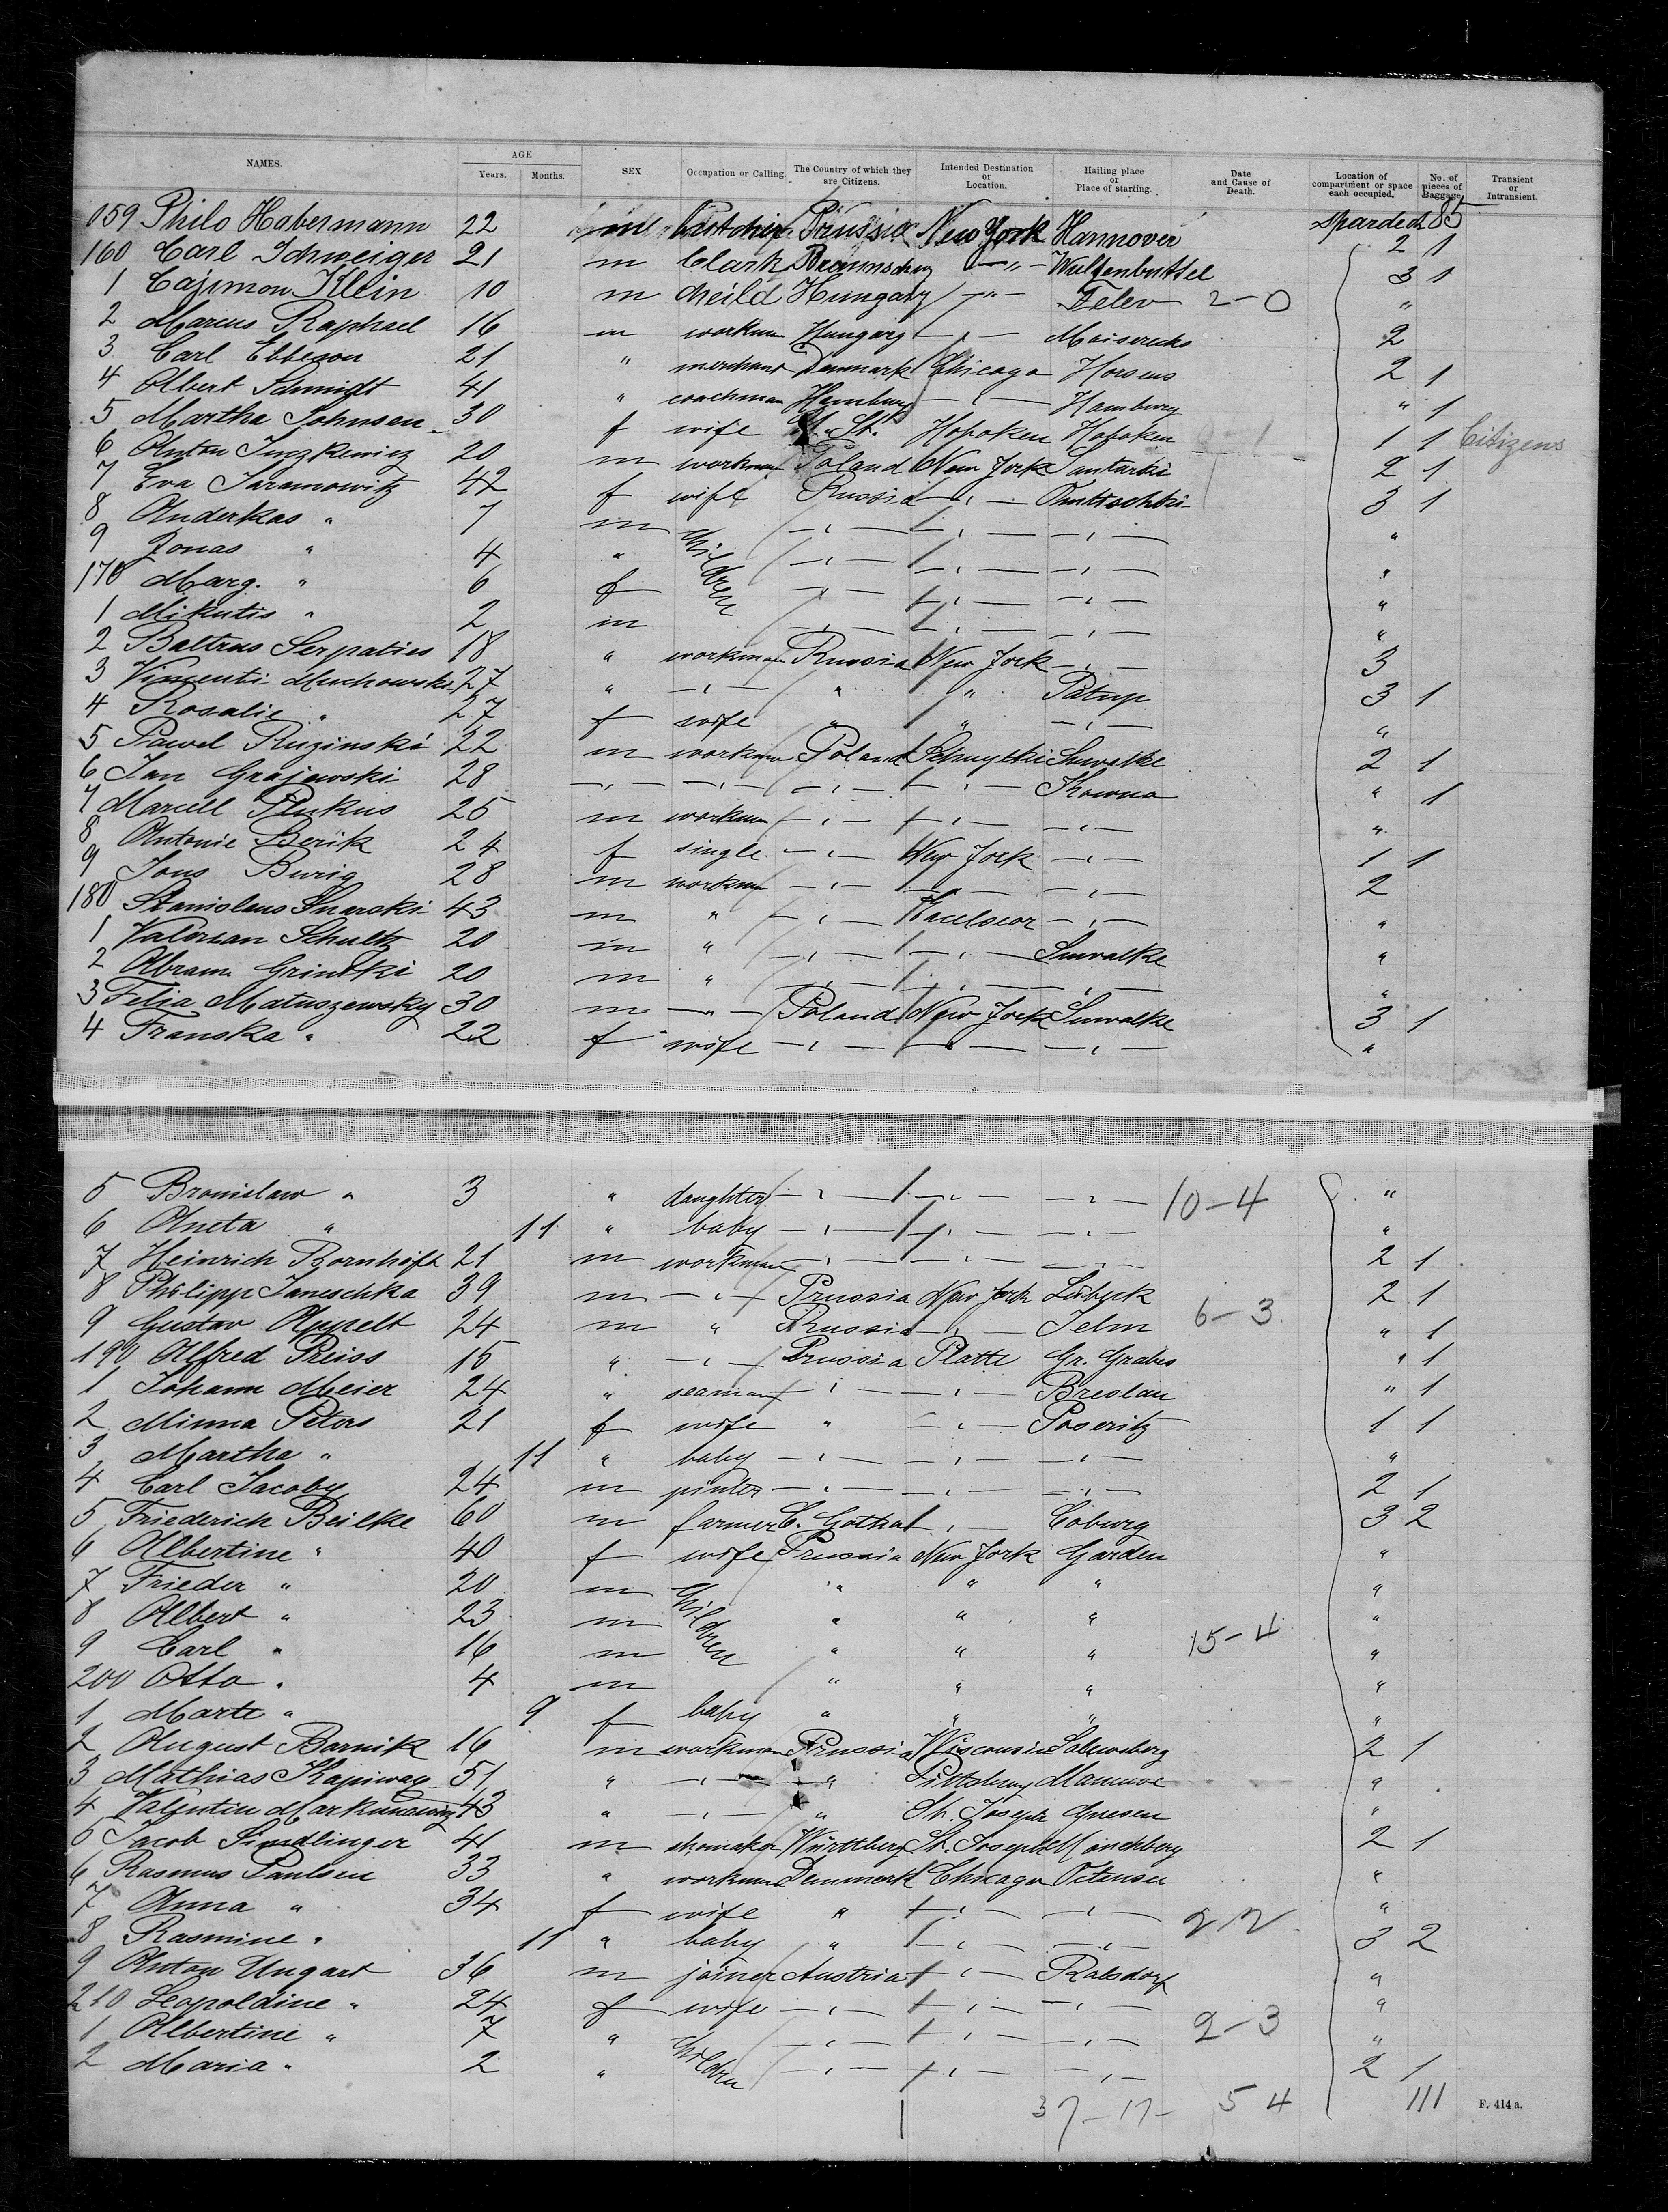 NAMES. AGE Years. Months. SEX Occupation or Calling. The Country of which they are Citizens. Intended Destination or Location. Hailing place or Place of starting. Date and Cause of Death. Location of compartment or space each occupied. No. of pieces of Baggage Transient or Intransient.
159 Philo Habermann 22 m Prussia New York Hannover 85
160 Carl Schweiger 21 m Clark Braunschwg —"— Wulfenbuttel 2 1
1 Cajimon Klein 10 m cheild Hungary —"— Felev 2-0 3 1
2 Marcus Raphael 16 m workman Hungarg —"— "
3 Carl Ebbeson 21 " merchant Danmark Chicago Horsens 2
4 Albert Schmidt 41 " coachman Hamburg —"— Hamburg 2 1
5 Martha Johnsen 30 f wife U. St. Hoboken Hoboken " 1
6 Anton 20 m workman Poland New York 1 1 Citizens
7 Eva Saramowitz 42 f wife Russia —"— 2 1
8 Anderkas " 7 m —"— —"— —"— 3 1
9 Jonas " 4 " Children —"— —"— —"— "
170 Marg. " 6 f —"— —"— —"— "
1 Mikutis " 2 m —"— —"— —"— "
2 Baltrus Serpaties 18 " workman Russia New York —"— "
3 Vincenti Muchowski 27 " —"— " " Patup 3
4 Rosalie " 27 f wife " " —"— 3 1
5 Pawel Ruzinski 22 m workman Poland Suwalke "
6 Jan Grajewski 28 —"— —"— —"— —"— Kowno 2 1
7 Marcell Pukus 25 m workman —"— —"— —"— " 1
8 Antonie Berik 24 f single —"— New York —"— "
9 Jons Burig 28 m workman —"— —"— —"— 1 1
180 Stanislaus Snarski 43 m " —"— —"— 2
1 Valerian Schultz 20 m " —"— —"— Suwalke "
2 Abram Grindki 20 m " —"— —"— —"— "
3 Felix Matuszewsky 30 m —"— Poland New York Suwalke "
4 Franska " 22 f wife —"— —"— —"— 3 1
"
5 Bronislaw " 3 " daughter —"— —"— —"— 10-4 "
6 Aneta " 11 " baby —"— —"— —"— "
7 Heinrich Bornhöft 21 m workman —"— —"— —"— 2 1
8 Philipp Janeschka 39 m —"— Prussia New York Lübeck 2 1
9 Gustav Appelt 24 m " Russia —"— Jelm 6-3. " 1
190 Alfred Preiss 15 " —"— Prussia Platte Gr. Grabes " 1
1 Johann Meier 24 " seaman —"— —"— Breslau " 1
2 Minna Peters 21 f wife " —"— Poseritz 1 1
3 Martha " 11 " baby —"— —"— —"— "
4 Carl Jacoby 24 m pinter —"— —"— —"— 2 1
5 Friederich Beilke 60 m farmer C. Gotha —"— Coburg 3 2
6 Albertine " 40 f wife Prussia New York Garden "
7 Frieder " 20 m Children " " " "
8 Albert " 23 m " " " "
9 Carl " 16 m " " " 15-4 "
200 Otto " 4 m " " " "
1 Marte " 9 f baby " " " "
2 August Barnik 16 m workman Prussia Wisconsin 2 1
3 Mathias 51 " —"— —"— Pittsburg "
4 Valentin 43 " —"— " St. Joseph Gnesen "
5 Jacob Sindlinger 41 m shomaker Württberg St. Joseph Mönchberg 2 1
6 Rasmus Paulsen 33 " workman Denmark Chicago "
7 Anna " 34 f wife " —"— —"— "
8 Rasmine " 11 " baby " —"— —"— 2 12 3 2
9 Anton Ungart 36 m joiner Austria —"— Rabsdorf "
210 Leopoldine " 24 f wife —"— —"— —"— "
1 Albertine " 7 " Children —"— —"— —"— 2-3 "
2 Maria " 2 " —"— —"— —"— 2 1
37-17- 54 111 F. 414 a.